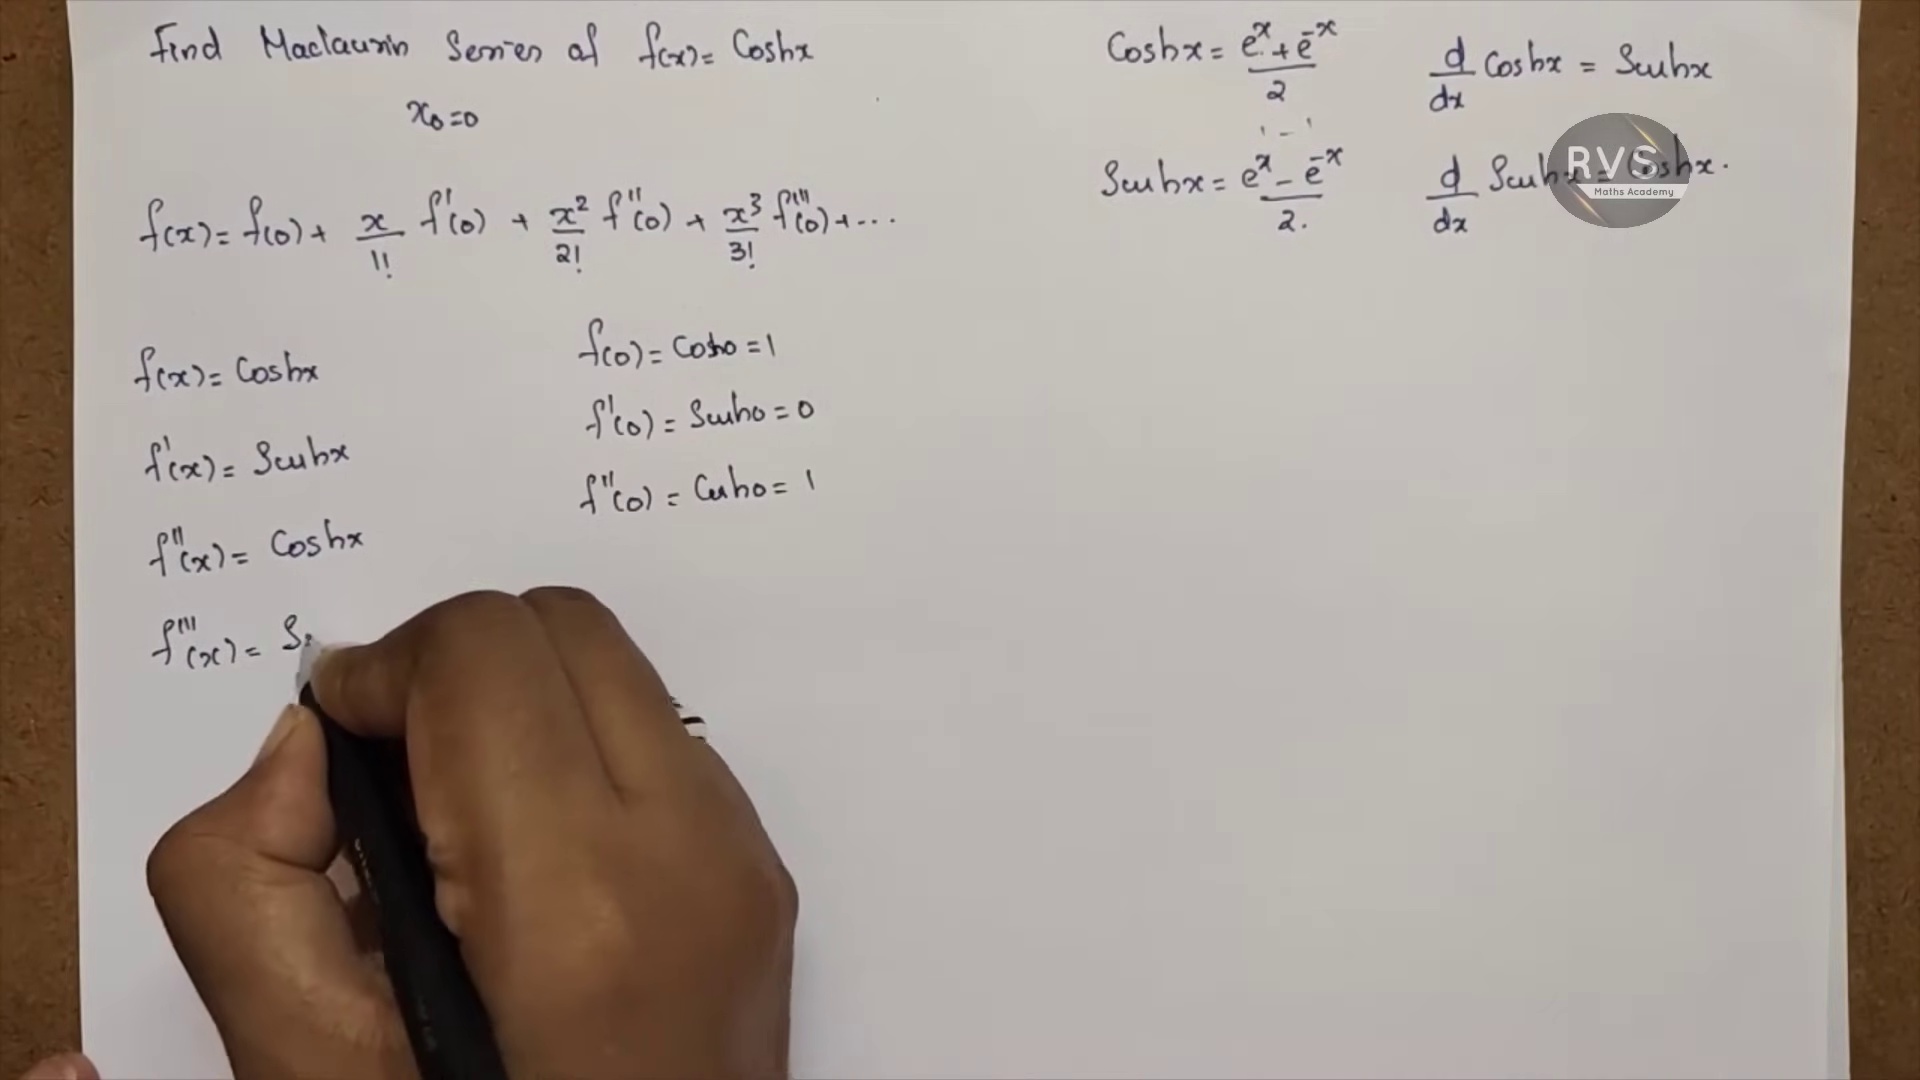 Find Maclaurin Series of f(x) = Coshx
x₀=0
f(x) = f(0) + x/1! f'(0) + x²/2! f''(0) + x³/3! f'''(0) + ...
f(x) = Coshx
f'(x) = Sinhx
f''(x) = Coshx
f'''(x) = S
f(0) = Cosh0 = 1
f'(0) = Sinh0 = 0
f''(0) = Cosh0 = 1
Coshx = eˣ + e⁻ˣ / 2
Sinhx = eˣ - e⁻ˣ / 2.
d/dx Coshx = Sinhx
d/dx Sinhx = Coshx.
RVS
Maths Academy